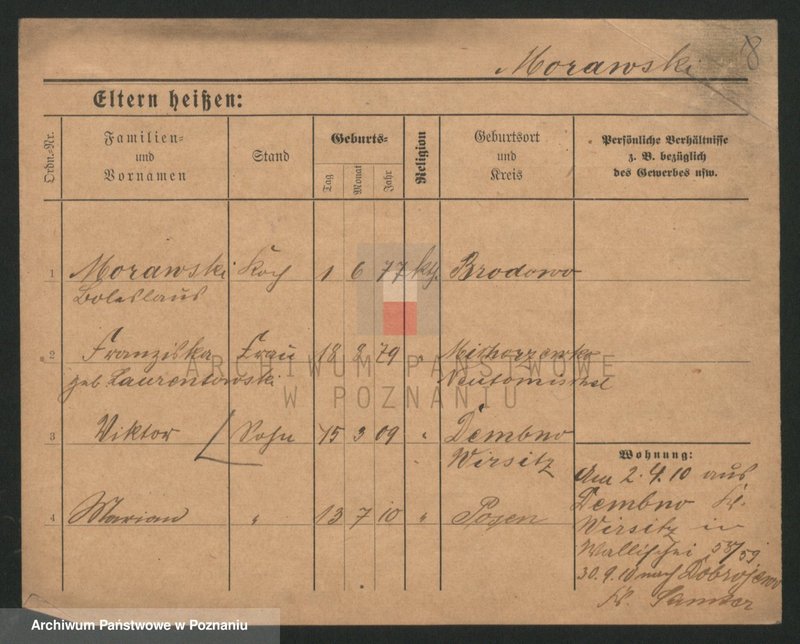 Morawski
8
Eltern heißen:
Ordn.-Nr.
Familien-
und
Vornamen
Stand
Geburts-
Tag
Monat
Jahr
Religion
Geburtsort
und
Kreis
Persönliche Verhältnisse
z. B. bezüglich
des Gewerbes usw.
1 Morawski Koch 1 6 77 kth. Brodowo
Boleslaus
2 Franziska Frau 18 2 79 " Michorzewko
geb. Laurentowski Neutomischel
3 Viktor Sohn 15 3 09 " Dembno
Wirsitz
4 Marian " 13 7 10 " Posen
Wohnung:
Am 2.4.10 aus
Dembno Kr.
Wirsitz in
Wallischei 58/59
30.9.10 nach Dobrojewo
Kr. Samter
ARCHIWUM PAŃSTWOWE
W POZNANIU
Archiwum Państwowe w Poznaniu